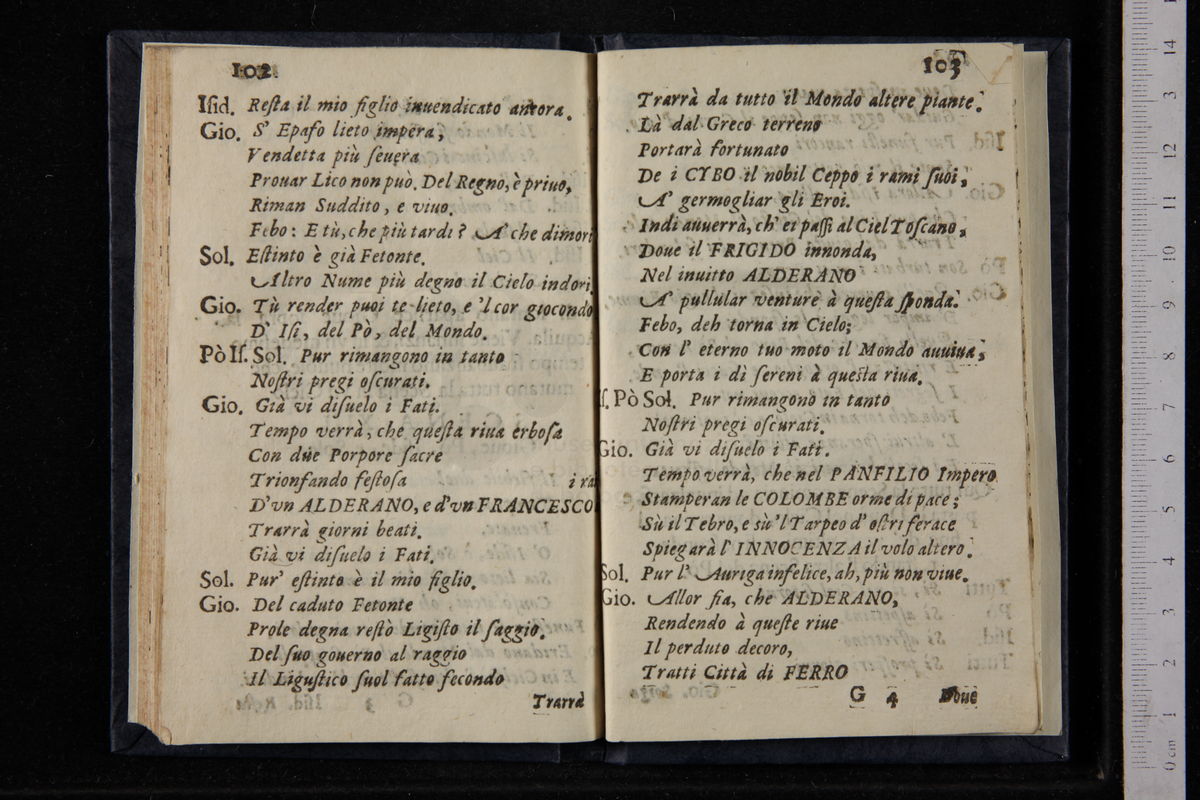 102
Isid. Resta il mio figlio inuendicato ancora.
Gio. S' Epafo lieto impera,
Vendetta più seuera
Prouar Lico non può. Del Regno, è priuo,
Riman Suddito, e viuo.
Febo: E tù, che più tardi? A' che dimori
Sol. Estinto è già Fetonte.
Altro Nume più degno il Cielo indori.
Gio. Tù render puoi te lieto, e 'l cor giocondo
D' Isi, del Pò, del Mondo.
Pò Is. Sol. Pur rimangono in tanto
Nostri pregi oscurati.
Gio. Già vi disuelo i Fati.
Tempo verrà, che questa riua erbosa
Con due Porpore sacre
Trionfando festosa
D'vn ALDERANO, e d'vn FRANCESCO
Trarrà giorni beati.
Già vi disuelo i Fati.
Sol. Pur' estinto è il mio figlio.
Gio. Del caduto Fetonte
Prole degna restò Ligisto il saggio.
Del suo gouerno al raggio
Il Ligustico suol fatto fecondo
Trarrà
103
Trarrà da tutto il Mondo altere piante.
Là dal Greco terreno
Portarà fortunato
De i CYBO il nobil Ceppo i rami suoi,
A' germogliar gli Eroi.
Indi auuerrà, ch' ei passi al Ciel Toscano,
Doue il FRIGIDO innonda,
Nel inuitto ALDERANO
A' pullular venture à questa sponda.
Febo, deh torna in Cielo;
Con l' eterno tuo moto il Mondo auuiua;
E porta i dì sereni à questa riua.
Is. Pò Sol. Pur rimangono in tanto
Nostri pregi oscurati.
Gio. Già vi disuelo i Fati.
Tempo verrà, che nel PANFILIO Impero
Stamperan le COLOMBE orme di pace;
Sù il Tebro, e sù 'l Tarpeo d' ostri ferace
Spiegarà l' INNOCENZA il volo altero.
Sol. Pur l' Auriga infelice, ah, più non viue.
Gio. Allor fia, che ALDERANO,
Rendendo à queste riue
Il perduto decoro,
Tratti Città di FERRO
G 4 Doue